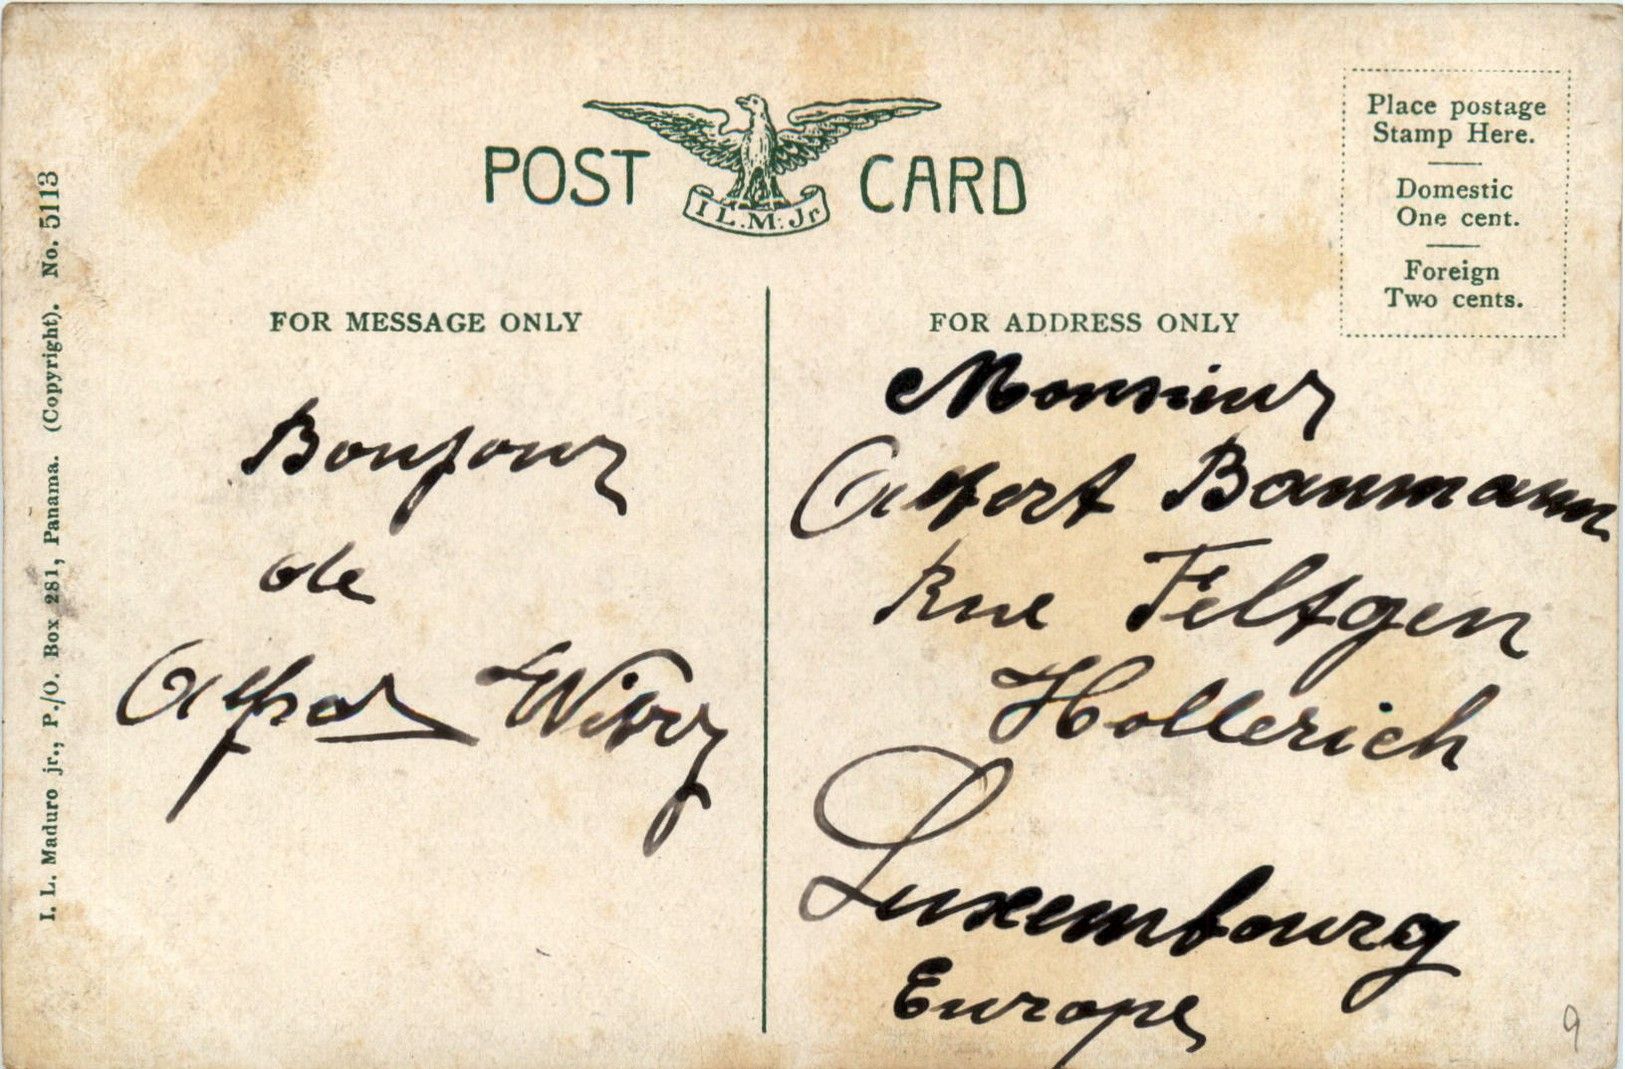 POST CARD
I.L.M.Jr
Place postage
Stamp Here.
Domestic
One cent.
Foreign
Two cents.
I. L. Maduro jr., P./O. Box 281, Panama. (Copyright). No. 5113
FOR MESSAGE ONLY
Bonjour
de
Alfred
FOR ADDRESS ONLY
Monsieur
Albert Baumann
Rue Feltgen
Hollerich
Luxembourg
Europe
9